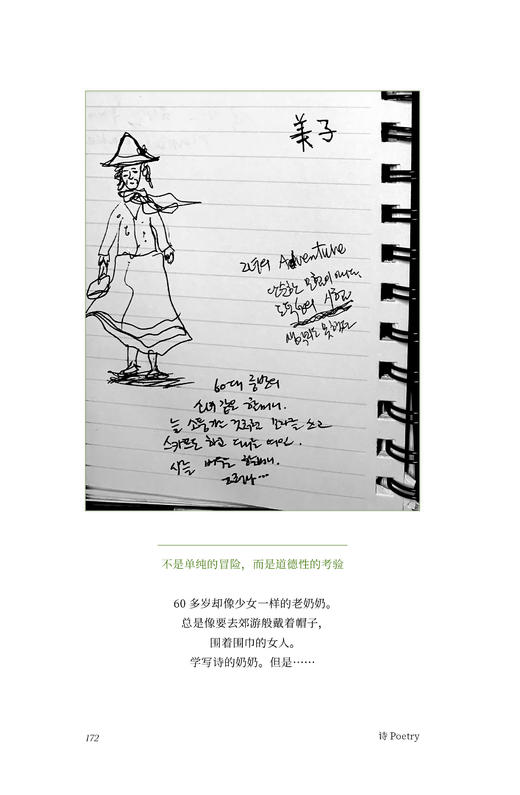 美子
그녀의 Adventure
단순한 모험이 아니다.
도덕성의 시험
60대 중반의
소녀 같은 할머니.
늘 소풍가는 것처럼 모자를 쓰고
스카프도 하고 다니는 여인.
시를 배우는 할머니.
그러나…
不是单纯的冒险，而是道德性的考验
60 多岁却像少女一样的老奶奶。
总是像要去郊游般戴着帽子，
围着围巾的女人。
学写诗的奶奶。但是……
172
诗 Poetry